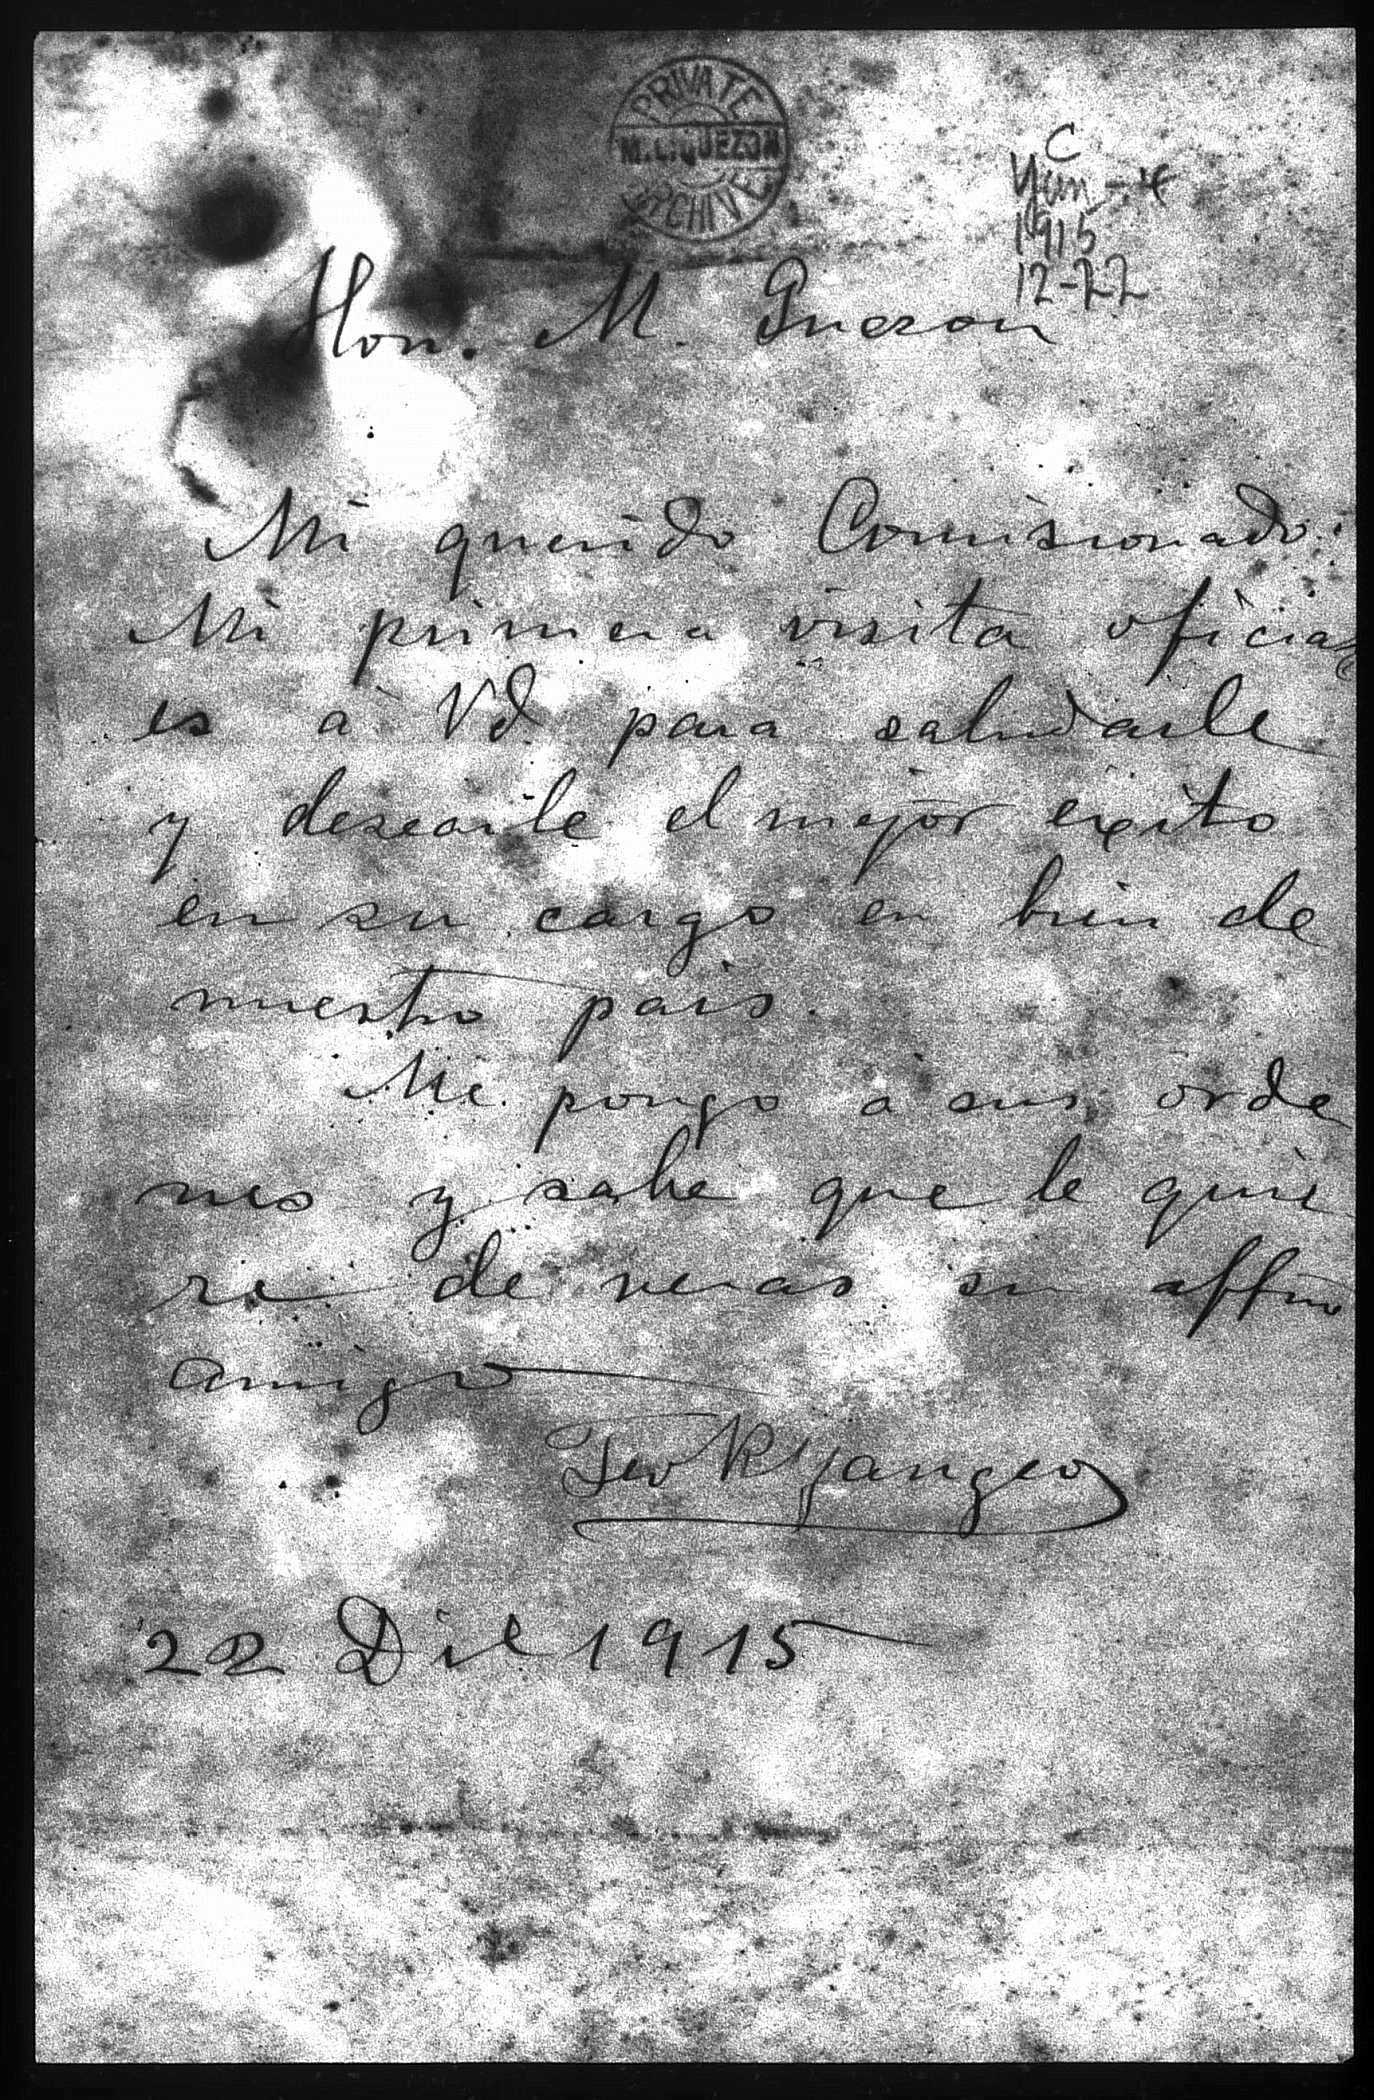 PRIVATE
M.L.QUEZON
ARCHIVE
C
1915
12-22
Hon. M. Quezon
Mi querido Comisionado:
Mi primera visita oficial
es a Vd para saludarle
y desearle el mejor exito
en su cargo en bien de
nuestro pais.
Me pongo a sus orde
nes y sabe que le quie
re de veras su affmo
amigo
Teo R Yangco
22 Dic 1915